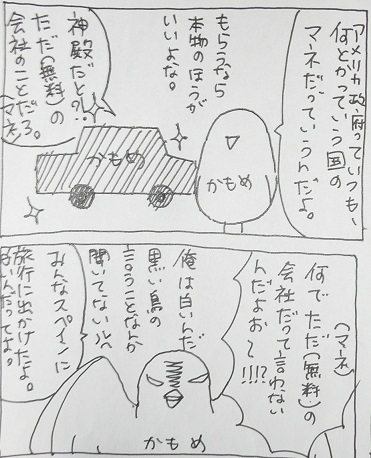 アメリカ政府っていつも、
何とかっていう国の
マーネだっていうんだよ。
もらうなら
本物のほうが
いいよな。
神殿だと?!
ただ(無料)の
会社のことだろ。
(マネ)
かもめ
かもめ
(マーネ)
何でただ(無料)の
会社だって言わない
んだよお〜!!!?
俺は白いんだ
黒い鳥の
言うことなんか
聞いてないルへ
みんなスペインに
旅行に出かけたよ。
いんだってよ。
かもめ